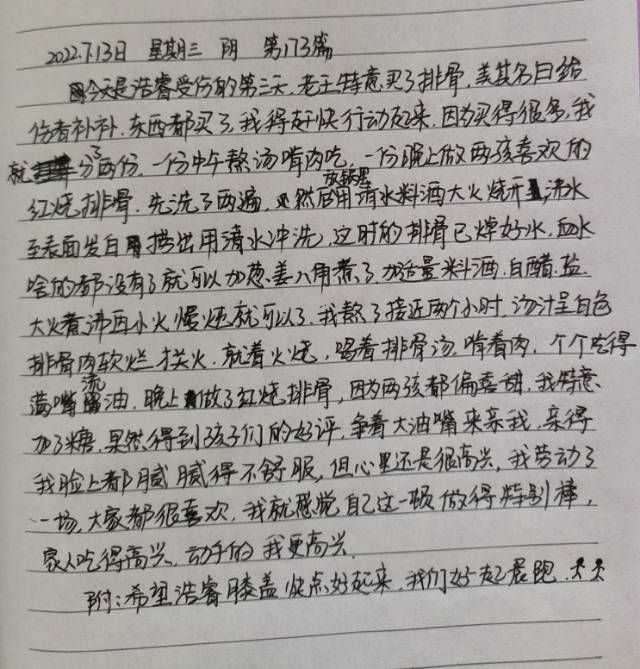 2022.7.13日 星期三 阴 第173篇
今天是浩睿受伤的第三天,老王特意买了排骨,美其名曰给
伤者补补,东西都买了,我得赶快行动起来,因为买得很多,我
就分了两份,一份中午熬汤啃肉吃,一份晚上做两孩喜欢的
红烧排骨。先洗了两遍,然后放锅里用清水料酒大火烧开,沸水
至表面发白捞出用清水冲洗,这时的排骨已焯好水,血水
啥的都没有了就可以加葱、姜八角煮了,加适量料酒、白醋、盐。
大火煮沸再小火慢炖就可以了,我熬了接近两个小时,汤汁呈白色
排骨肉软烂才关火。就着火烧,喝着排骨汤,啃着肉,个个吃得
满嘴流油。晚上做了红烧排骨,因为两孩都偏喜甜,我特意
加了糖,果然得到孩子们的好评,争着大油嘴来亲我,亲得
我脸上都腻腻得不舒服,但心里还是很高兴,我劳动了
一场,大家都很喜欢,我就感觉自己这一顿做得特别棒,
家人吃得高兴、动手的我更高兴。
附:希望浩睿膝盖快点好起来,我们好起晨跑。